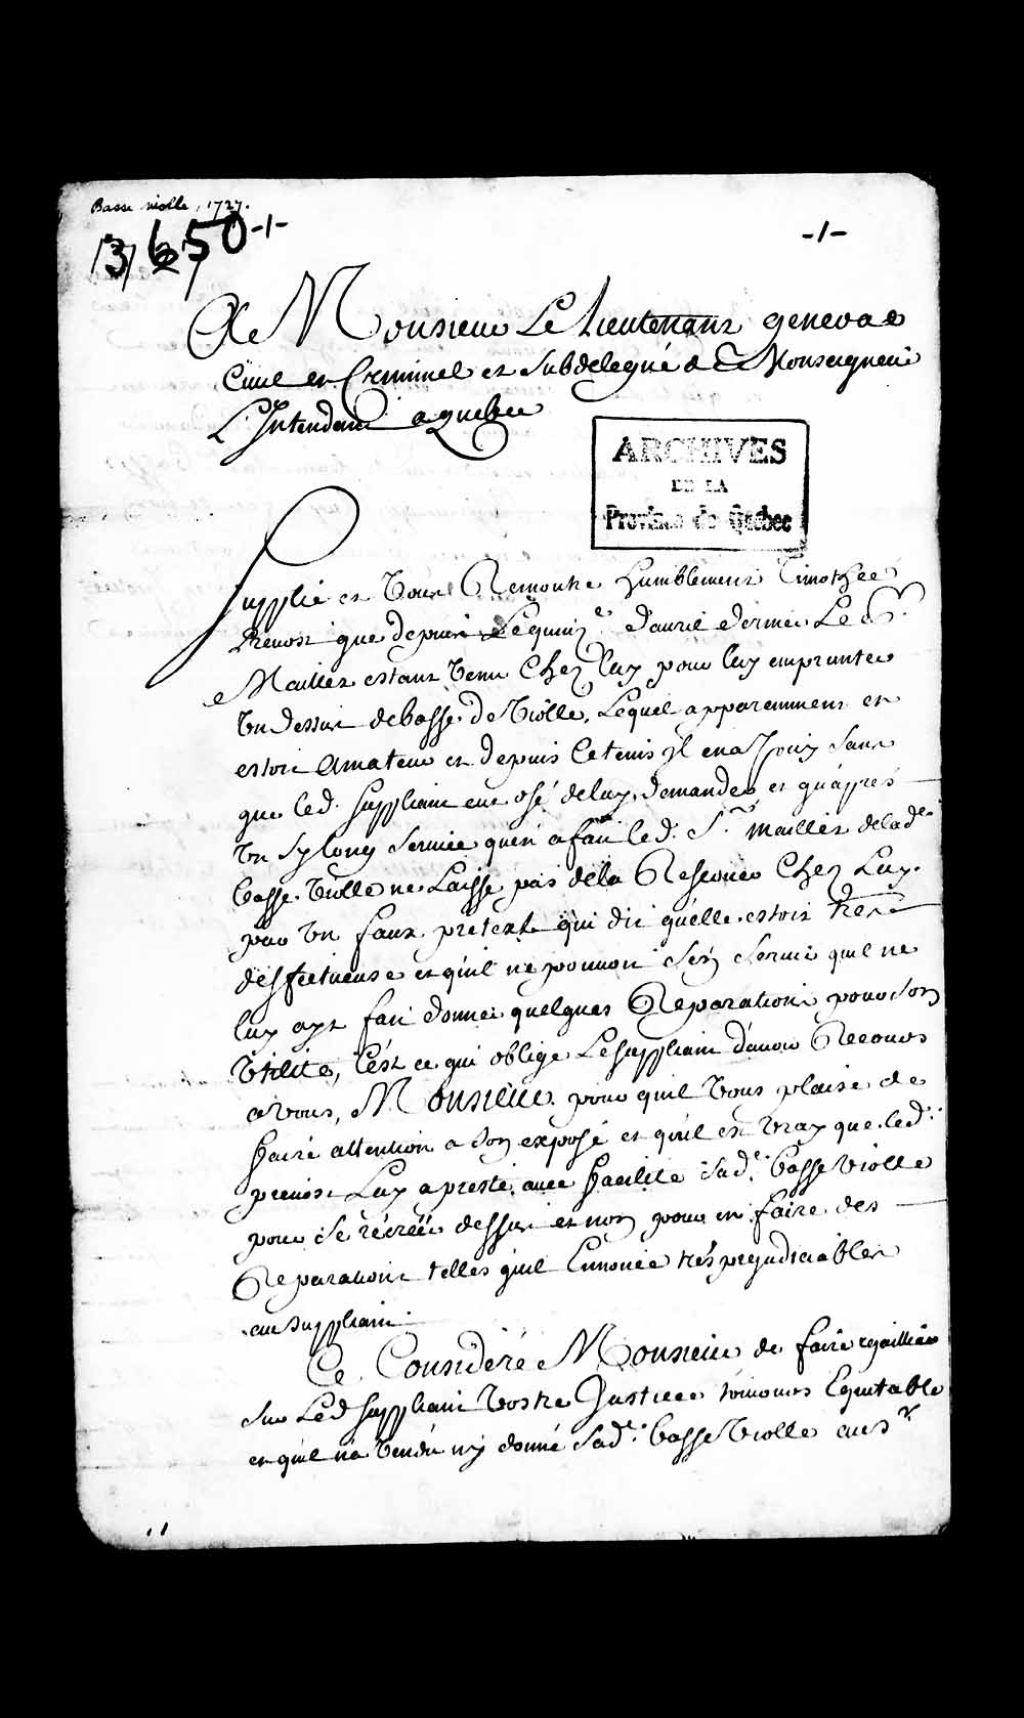 Basse violle, 1727.
13650 -1-
-1-
A Monsieur Le Lieutenant general
Civil et Criminel et Subdelegué de Monseigneur
L'Intendant a quebec
ARCHIVES
DE LA
Province de Quebec
Supplie et Vous Remontre humblement Timothée
Prevost que depuis Le quinze d'auril dernier Le Sr.
Maillet estant Venu Chez luy pour luy emprunter
Un dessus de basse de Violle, Lequel apparemment en
estoit Amateur et depuis Ce temps il en a Jouy sans
que led. suppliant eut osé de luy demander et qu'apres
Un sy long service qu'en a fait led. Sr. Maillet de lade.
basse Violle ne Laisse pas de la Chez Luy.
par Un faux pretexte qui dit qu'elle estoit tres
desfectueuse et qu'il ne pouuoit s'en seruir qu'il ne
luy ayt fait donner quelques Reparations pour son
Utilité, C'est ce qui oblige Le suppliant d'auoir Recours
a Vous, Monsieur, pour qu'il Vous plaise de
faire attention a son exposé et qu'il est Vray que led.
prevost Luy a presté auec facilité sade. basse Violle
pour se récréér dessus et non pour en faire des
Reparations telles qu'il trés prejudiciables
au suppliant.
Ce Considéré Monsieur de faire
sur Led suppliant Vostre Justice tousiours Equitable
et qu'il n'a Vendu ny donné sade. basse Violle au Sr.